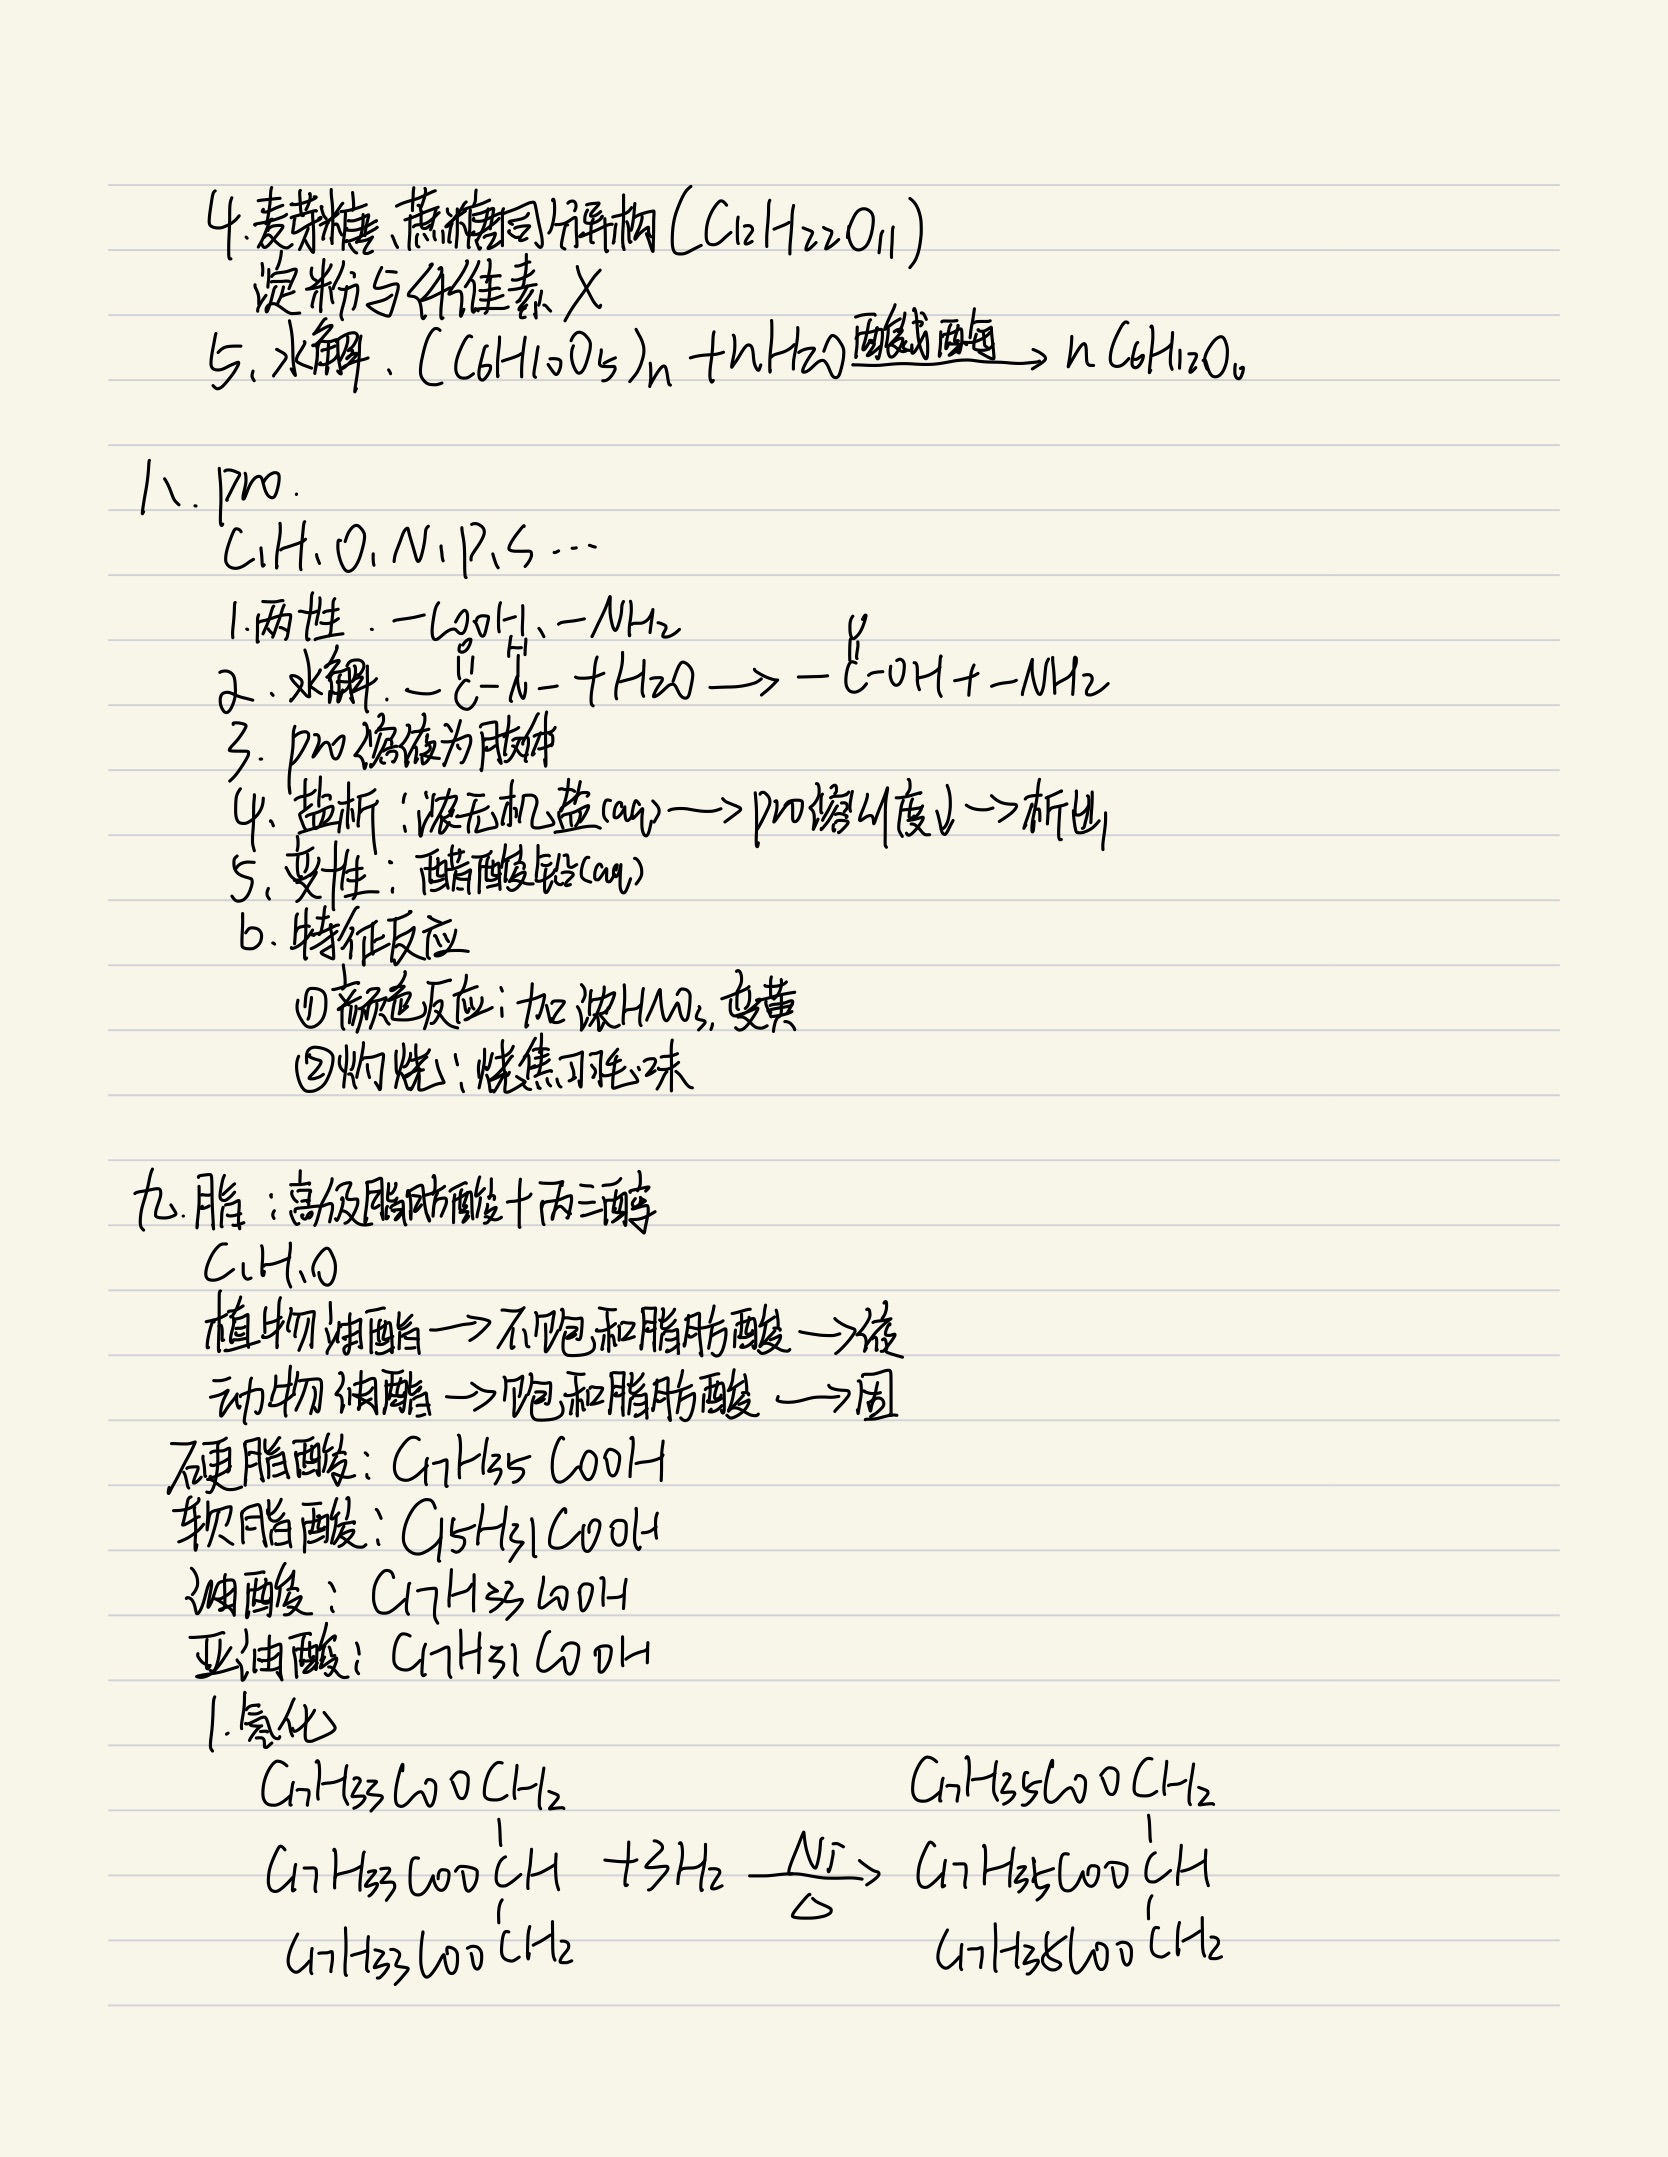 4.麦芽糖、蔗糖同分异构(C12H22O11)
淀粉与纤维素 X
5、水解.(C6H10O5)n+nH2O 酸或酶→ nC6H12O6
八.pro.
C、H、O、N、P、S…
1.两性.-COOH、-NH2
O H O
2.水解.-C-N-+H2O→-C-OH+-NH2
3.pro溶液为胶体
4、盐析:浓无机盐(aq)→pro溶解度↓→析出
5、变性:醋酸铅(aq)
6.特征反应
①颜色反应:加浓HNO3,变黄
②灼烧:烧焦羽毛味
九.脂:高级脂肪酸+丙三醇
C、H、O
植物油酯→不饱和脂肪酸→液
动物油酯→饱和脂肪酸→固
硬脂酸:C17H35COOH
软脂酸:C15H31COOH
油酸:C17H33COOH
亚油酸:C17H31COOH
1.氢化
C17H33COOCH2 C17H35COOCH2
C17H33COOCH +3H2 Ni→ C17H35COOCH
△
C17H33COOCH2 C17H35COOCH2